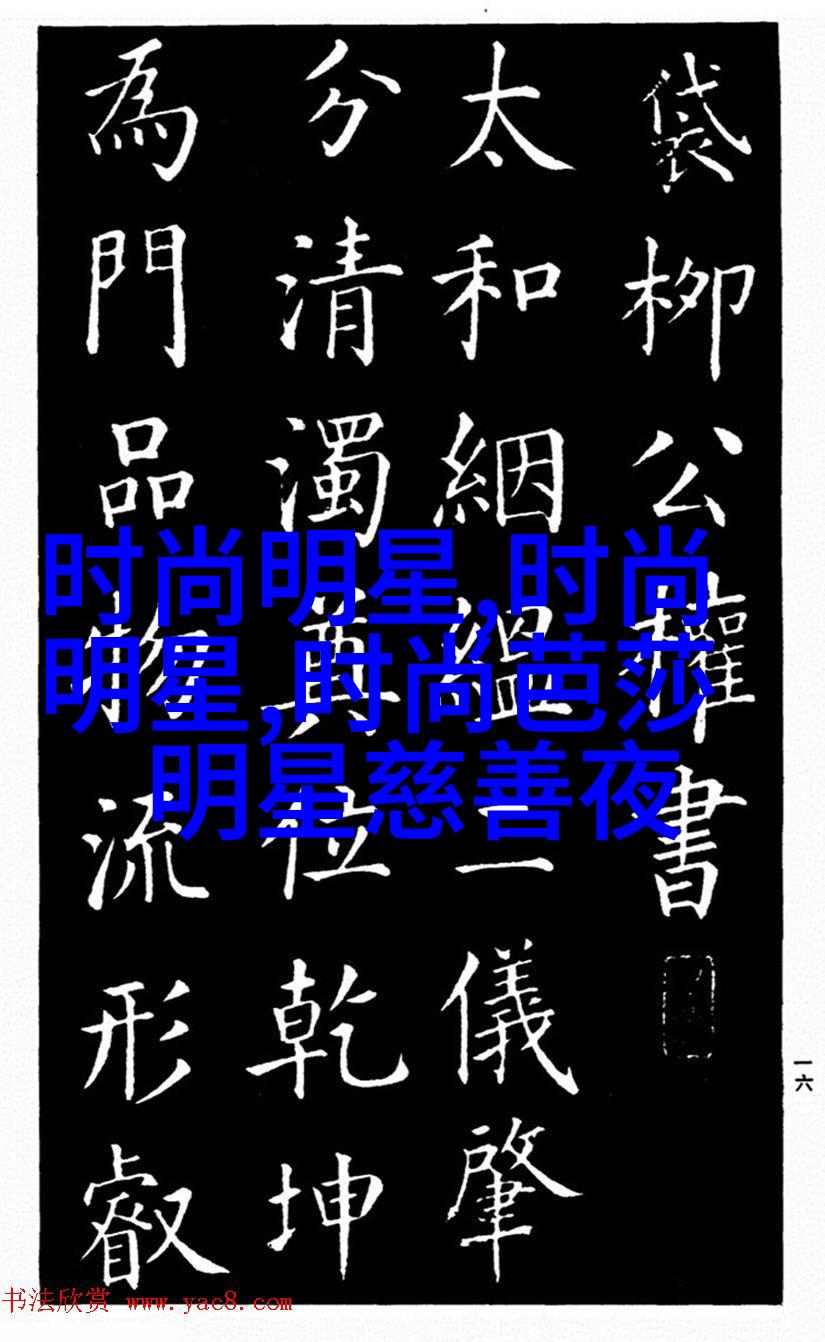 袋柳公權書
太和絪縕二儀肇
分清濁奠位乾坤
為門品物流形叡
时尚明星,时尚
明星,时尚芭莎
明星慈善夜
一六
书法欣赏 www.yac8.com